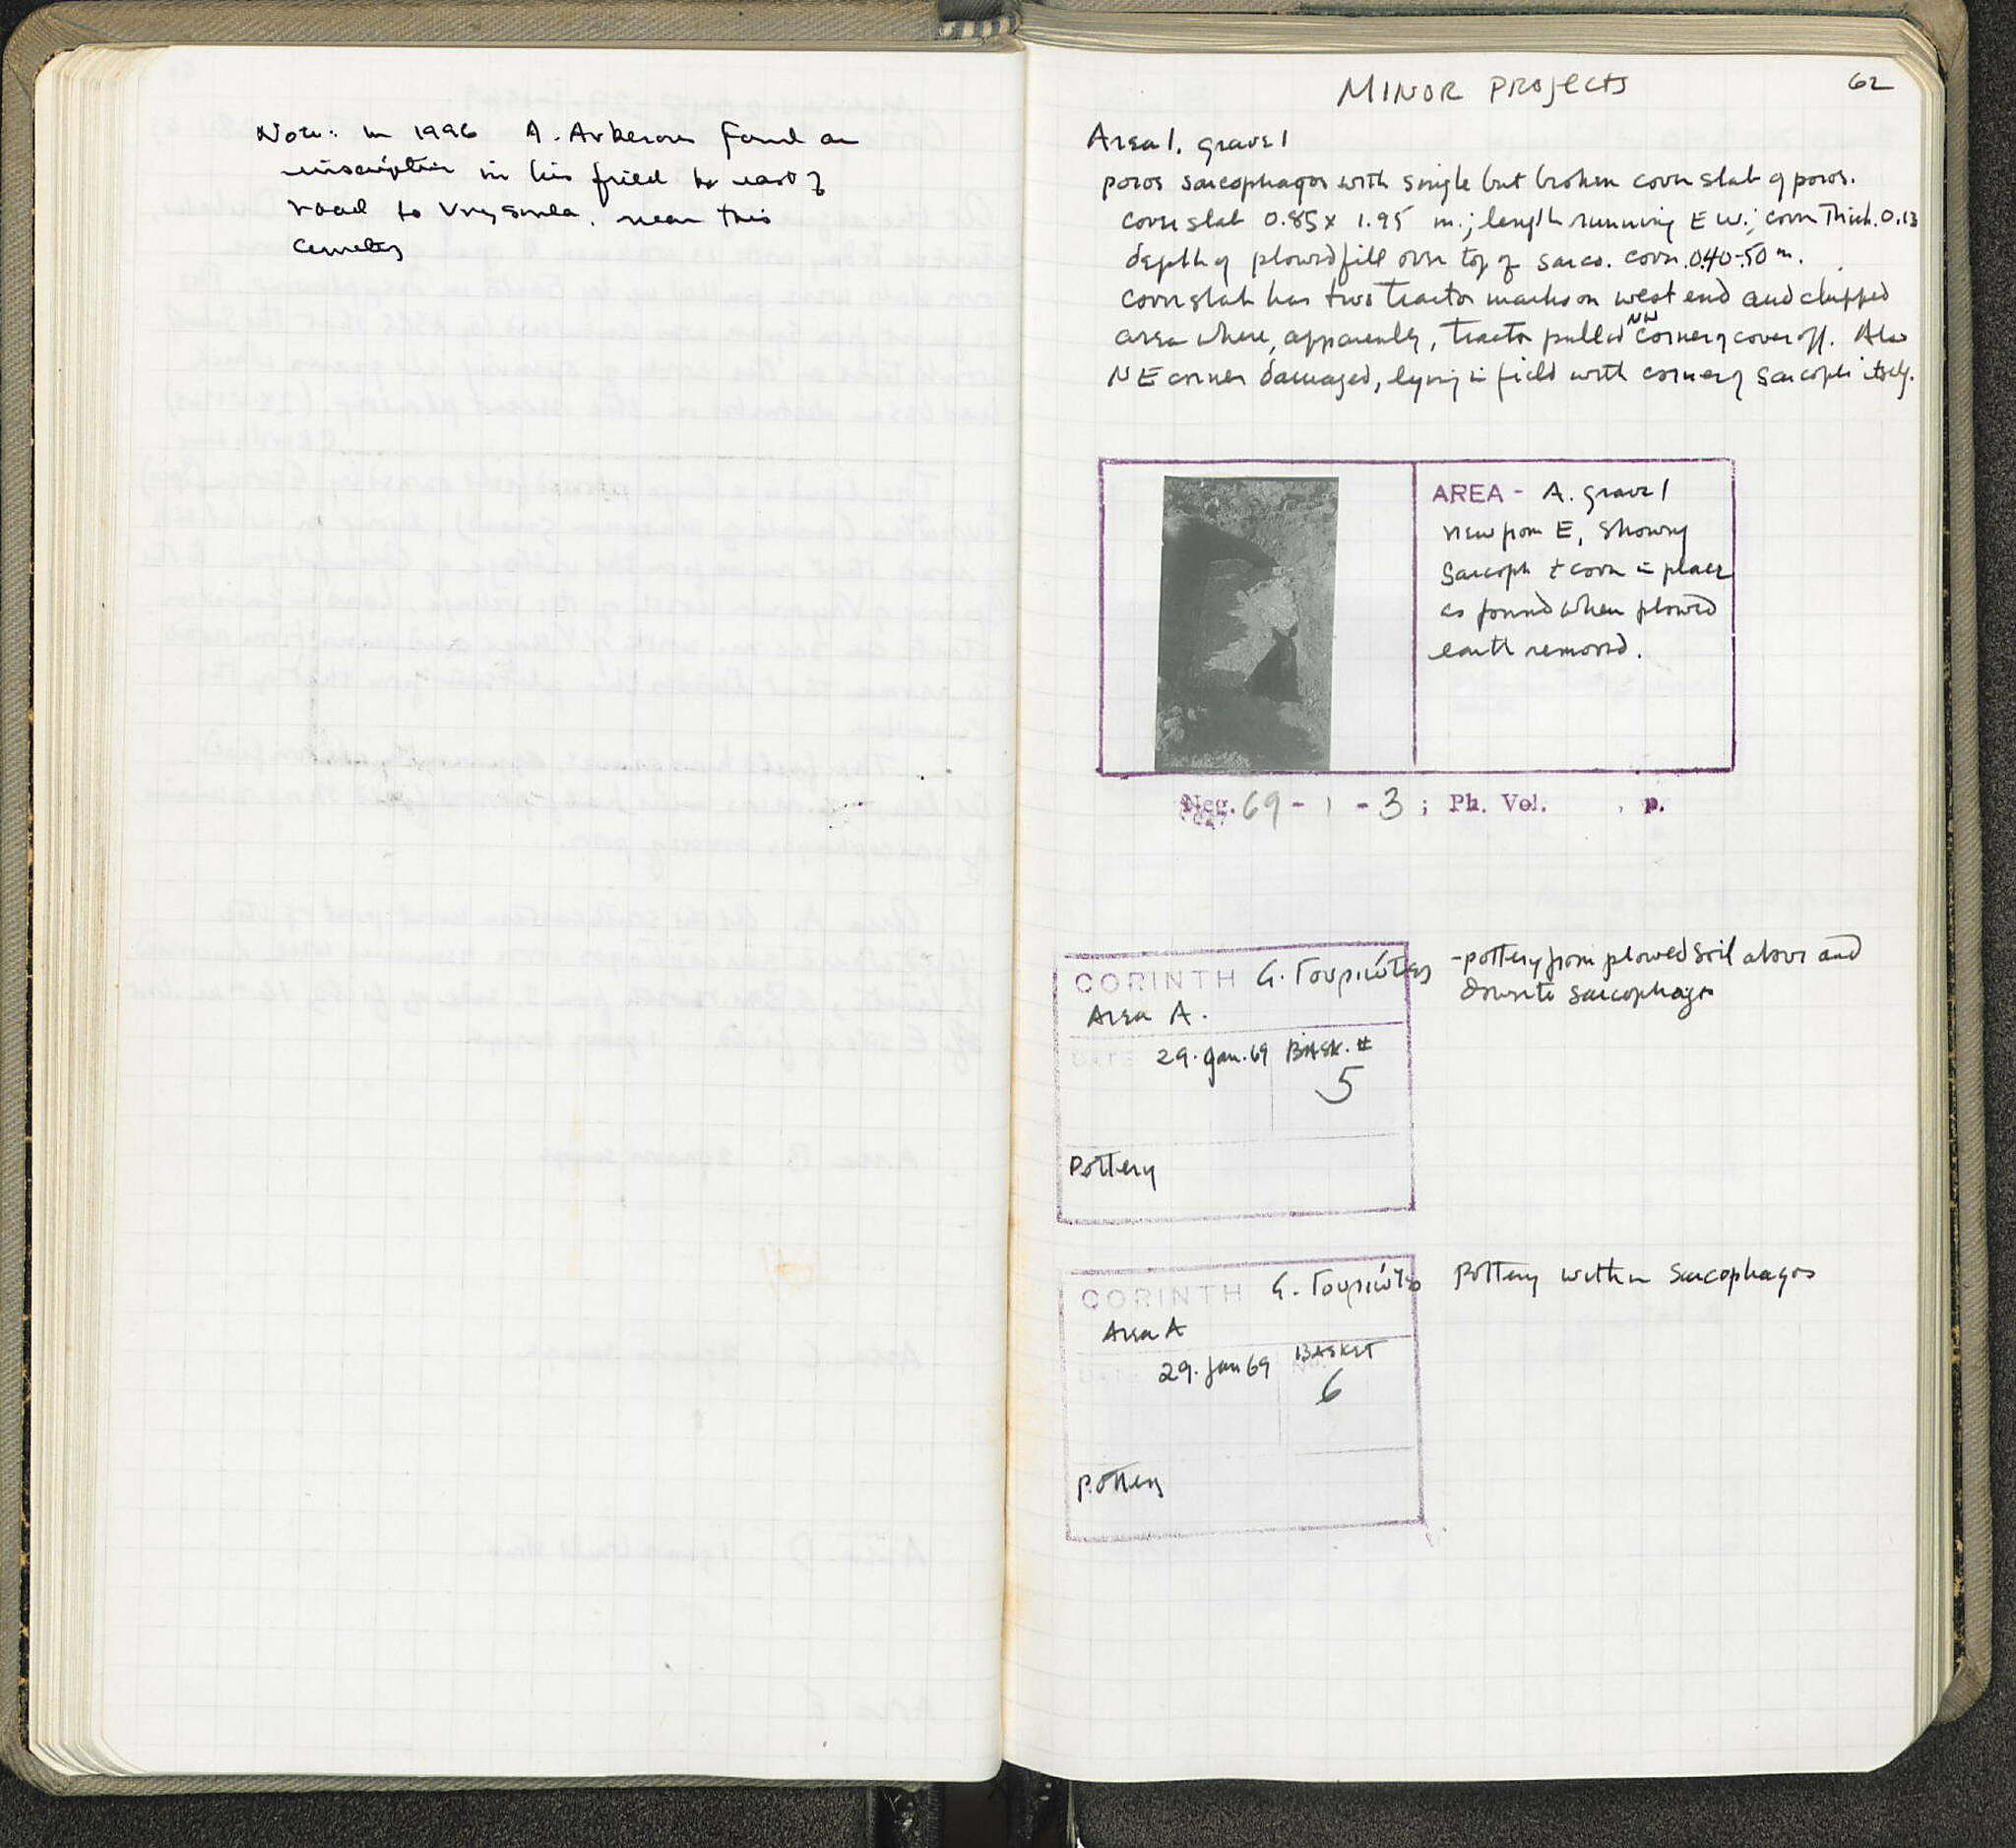 Note: in 1996 A. Arberores found an
inscription in his field to east of
road to Vrysoula. near this
Cemetery
MINOR PROJECTS 62
Area 1. grave 1
poros sarcophagos with single but broken cover slab of poros.
cover slab 0.85 x 1.95 m.; length running E W.; cover Thick. 0.13
depth of plowed fill over top of sarco. cover. 0.40-.50 m.
cover slab has two tractor marks on west end and chipped
area where, apparently, tractor pulled NW corner of cover off. Also
NE corner damaged, lying in field with corner of sarcoph itself.
AREA - A. grave 1
view from E, showing
Sarcoph + cover in place
as found when plowed
earth removed.
Neg. 69 - 1 - 3 ; Ph. Vol. , p.
CORINTH G. Γουριώτης
Area A.
DATE 29. Jan. 69 BASK. #
5
Pottery
-pottery from plowed soil above and
down to sarcophagos
CORINTH G. Γουριώτης
Area A
DATE 29. Jan 69 BASKET
No.
6
Pottery
Pottery within Sarcophagos